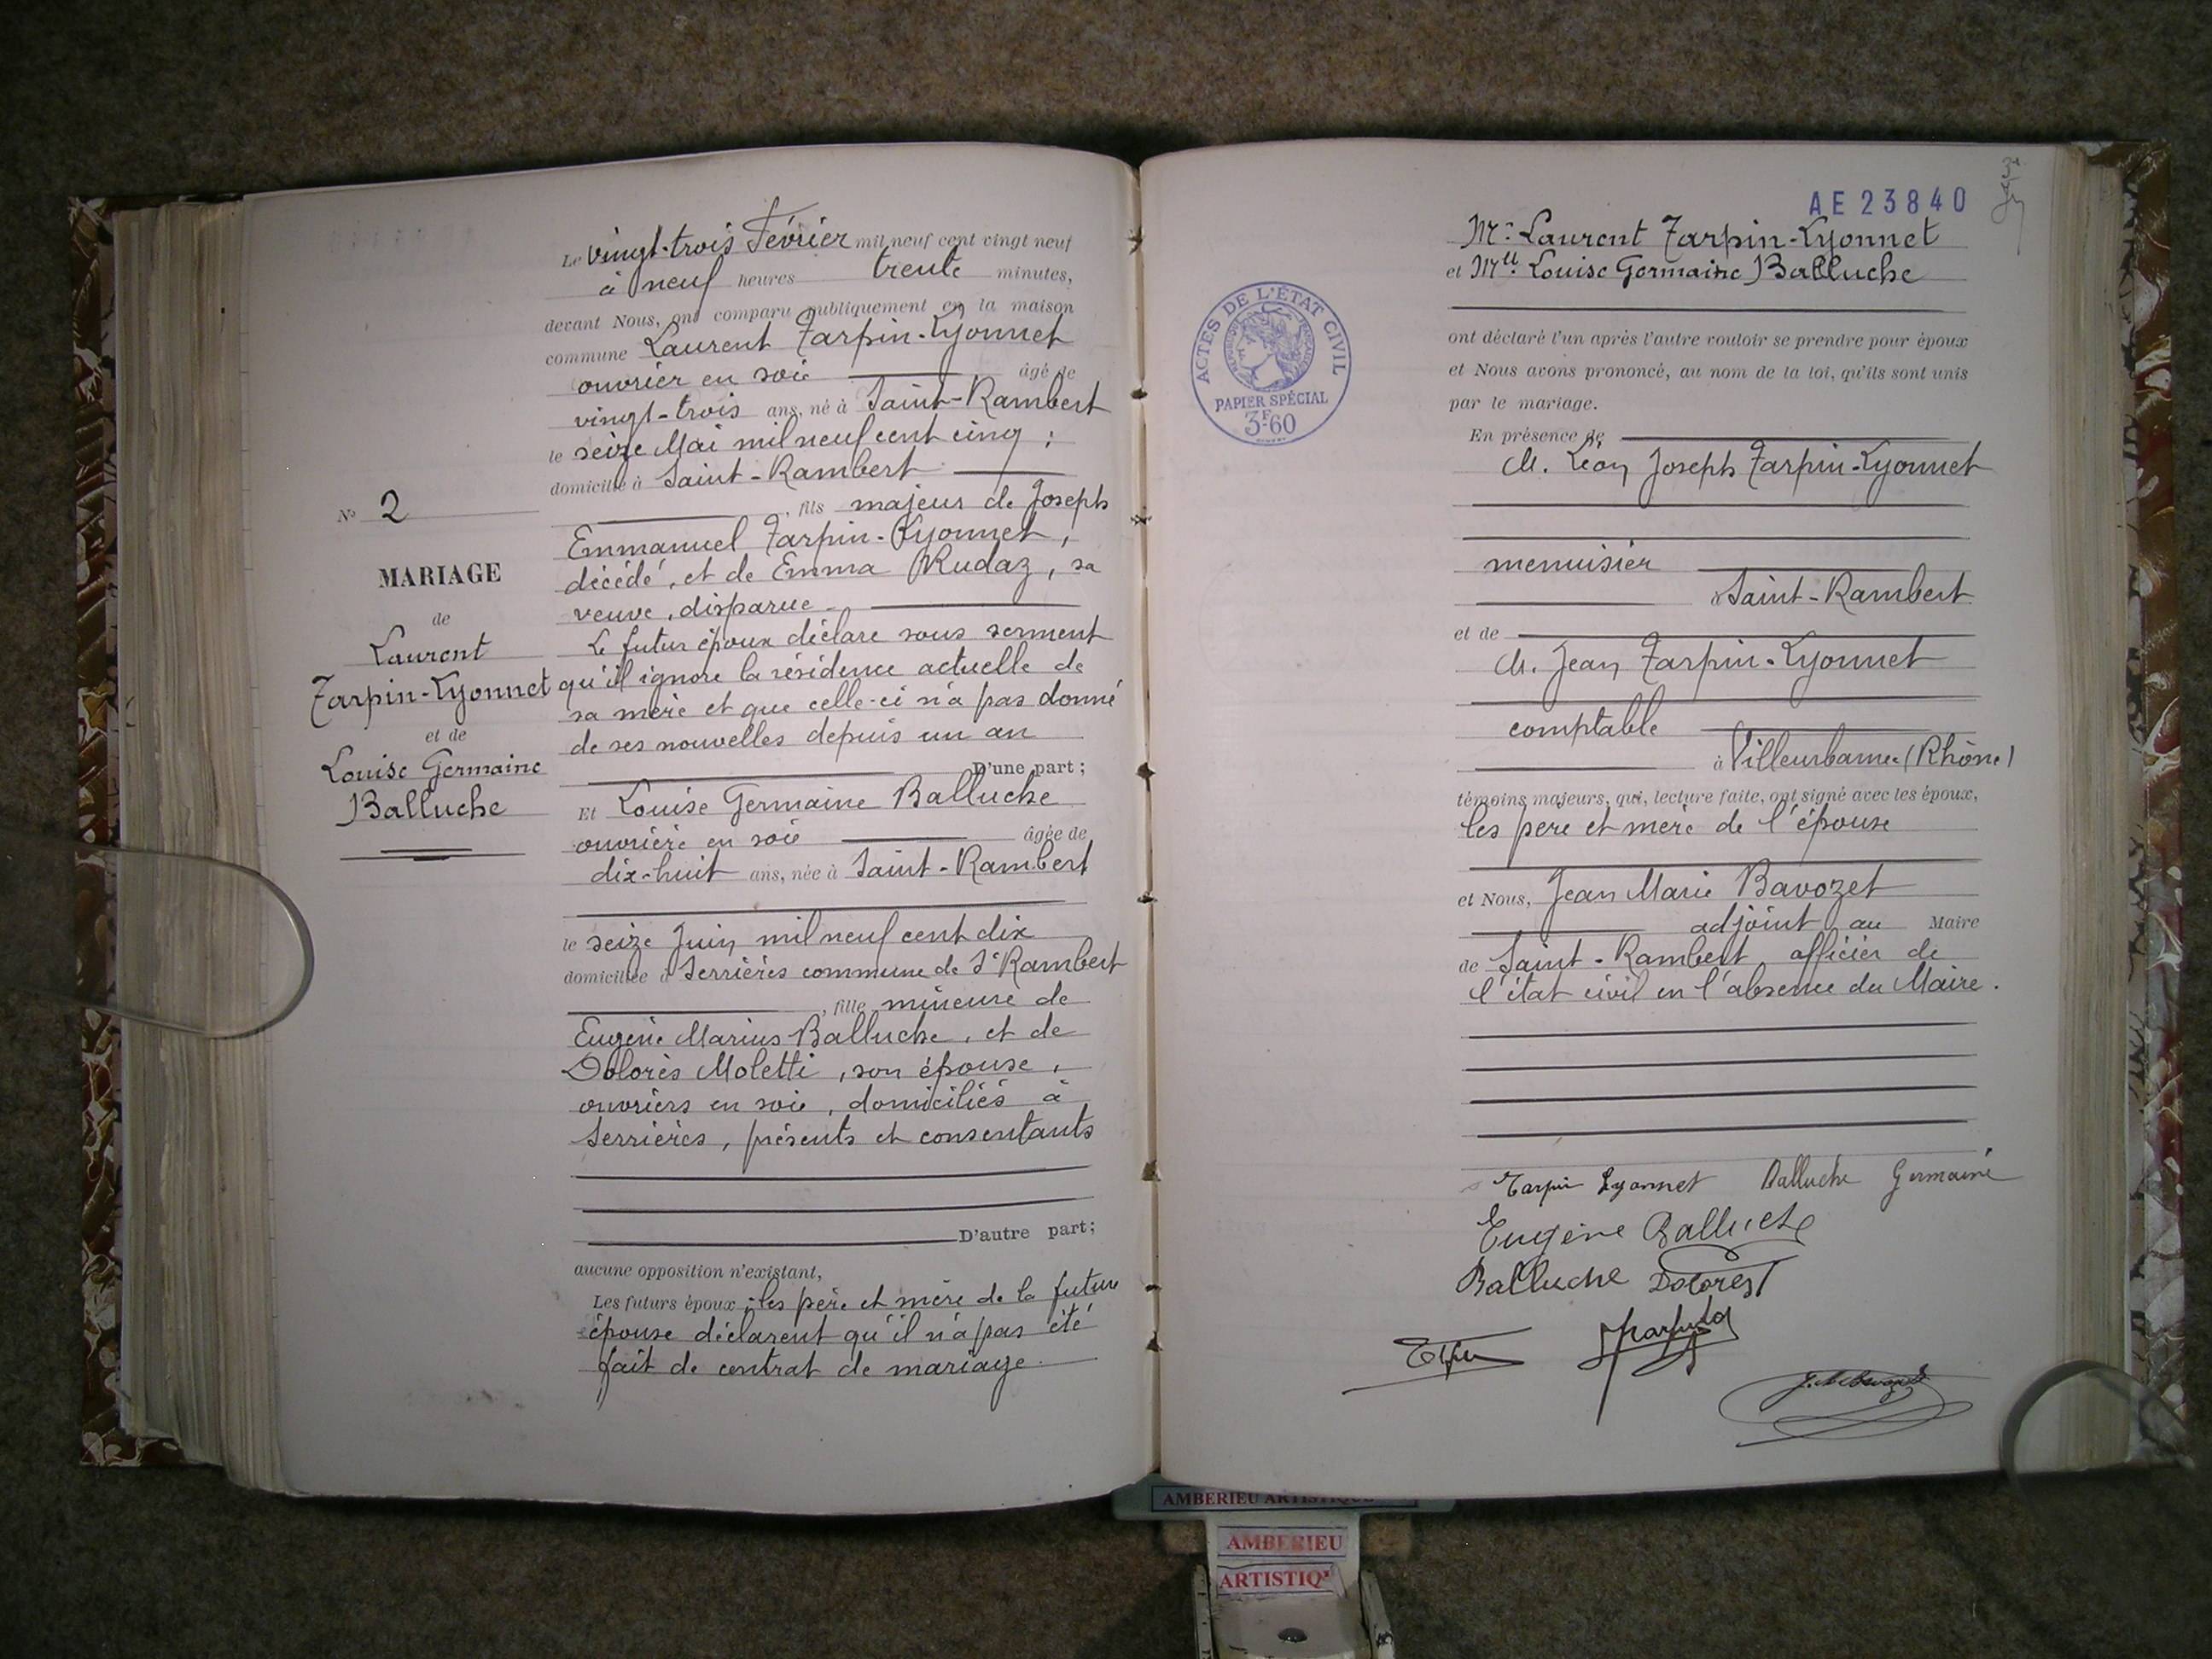 Le vingt-trois Février mil neuf cent vingt neuf
à neuf heures trente minutes,
devant Nous, ont comparu publiquement en la maison
commune Laurent Tarpin-Lyonnet
ouvrier en soie âgé de
vingt-trois ans, né à Saint-Rambert
le seize Mai mil neuf cent cinq ;
domicilié à Saint-Rambert
, fils majeur de Joseph
Emmanuel Tarpin-Lyonnet,
décédé, et de Emma Rudaz, sa
veuve, disparue
Le futur époux déclare sous serment
qu'il ignore la résidence actuelle de
sa mère et que celle-ci n'a pas donné
de ses nouvelles depuis un an
D'une part ;
Et Louise Germaine Balluche
ouvrière en soie âgée de
dix-huit ans, née à Saint-Rambert
le seize Juin mil neuf cent dix
domiciliée à Serrières commune de St Rambert
, fille mineure de
Eugène Marius Balluche, et de
Dolorès Moletti, son épouse,
ouvriers en soie, domiciliés à
Serrières, présents et consentants
D'autre part ;
aucune opposition n'existant,
Les futurs époux ; les père et mère de la future
épouse déclarent qu'il n'a pas été
fait de contrat de mariage.
No 2
MARIAGE
de
Laurent
Tarpin-Lyonnet
et de
Louise Germaine
Balluche
AE 23840
Mr Laurent Tarpin-Lyonnet
et Mlle Louise Germaine Balluche
ont déclaré l'un après l'autre vouloir se prendre pour époux
et Nous avons prononcé, au nom de la loi, qu'ils sont unis
par le mariage.
En présence de
M. Léon Joseph Tarpin-Lyonnet
menuisier
à Saint-Rambert
et de
M. Jean Tarpin-Lyonnet
comptable
à Villeurbanne (Rhône)
témoins majeurs, qui, lecture faite, ont signé avec les époux,
les père et mère de l'épouse
et Nous, Jean Marie Bavozet
adjoint au Maire
de Saint-Rambert, officier de
l'état civil en l'absence du Maire.
Tarpin Lyonnet Balluche Germaine
Eugène Balluche
Balluche Dolorès
ACTES DE L'ÉTAT CIVIL
RÉPUBLIQUE FRANÇAISE
PAPIER SPÉCIAL
3F60
AMBERIEU ARTISTIQUE
AMBERIEU
ARTISTIQ